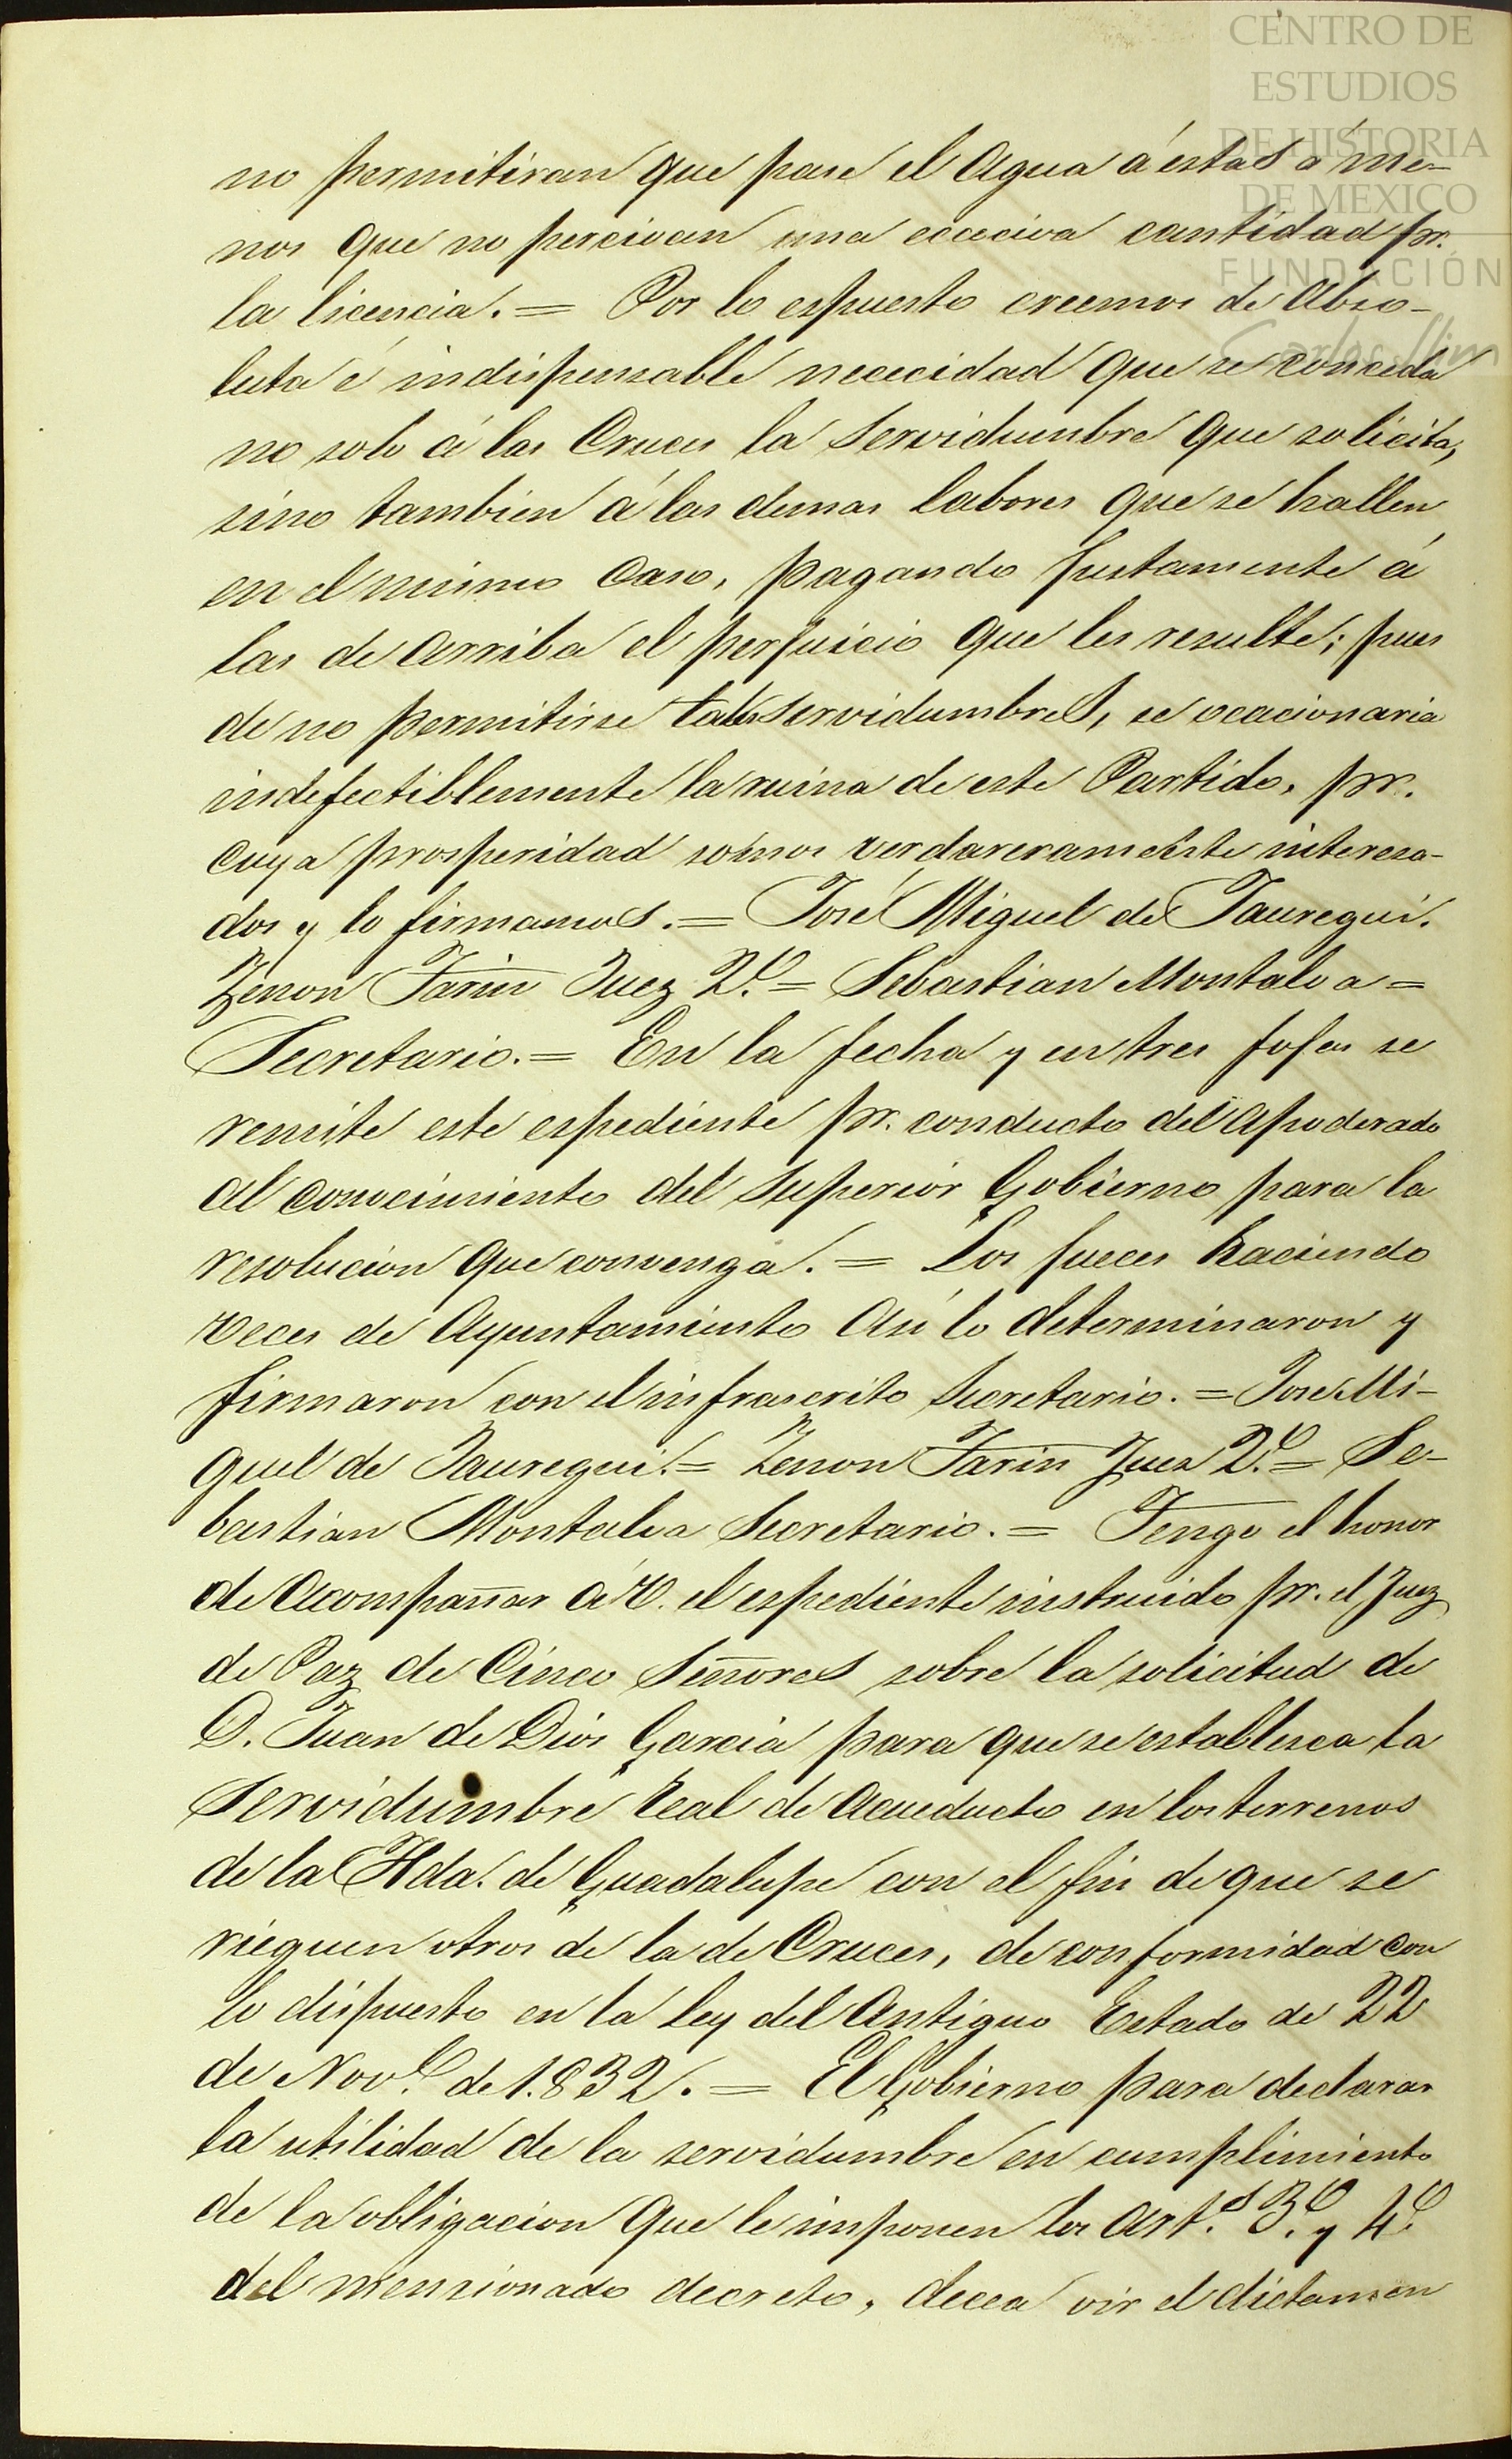 CENTRO DE
ESTUDIOS
DE HISTORIA
DE MEXICO
FUNDACIÓN
Carlos Slim
no permitiran que pase el agua á éstas á me-
nos que no percivan unaececiva cantidad pr.
la licencia. = Por lo espuesto creemos de abso-
luta é indispensable nececidad que se conceda
no solo á las Cruces la servidumbre que solicita,
sino tambien á las demas labores que se hallen
en el mismo caso, pagando justamente á
las de arriba el perjuicio que les resulte; pues
de no permitirse tales servidumbres, se ocacionaria
indefectiblemente la ruina de este Partido, pr.
cuya prosperidad somos verdareramente interesa-
dos y lo firmamos. = José Miguel de Jauregui.
Zenon Farin Juez 2º. = Sebastian Montalva =
Secretario. = En la fecha y en tres fojas se
remite este espediente pr. conducto del apoderado
al conocimiento del Superior Gobierno para la
resolucion que convenga. = Los jueces haciendo
veces de Ayuntamiento asi lo determinaron y
firmaron con el infrascrito Secretario. = Jose Mi-
guel de Jauregui. = Zenon Farin Juez 2º. = Se-
bastian Montalva Secretario. = Tengo el honor
de acompañar á V. el espediente instruido pr. el Juez
de Paz de Cinco Señores sobre la solicitud de
D. Juan de Dios Garcia para que se establesca la
servidumbre real de acueducto en los terrenos
de la Hda. de Guadalupe con el fin de que se
rieguen otros de la de Cruces, de conformidad con
lo dispuesto en la ley del Antiguo Estado de 22
de Nove. de 1.832. = El Gobierno para declarar
la utilidad de la servidumbre en cumplimiento
de la obligacion que le imponen los arts. 3º. y 4º.
del mensionado decreto, decea oir el dictamen